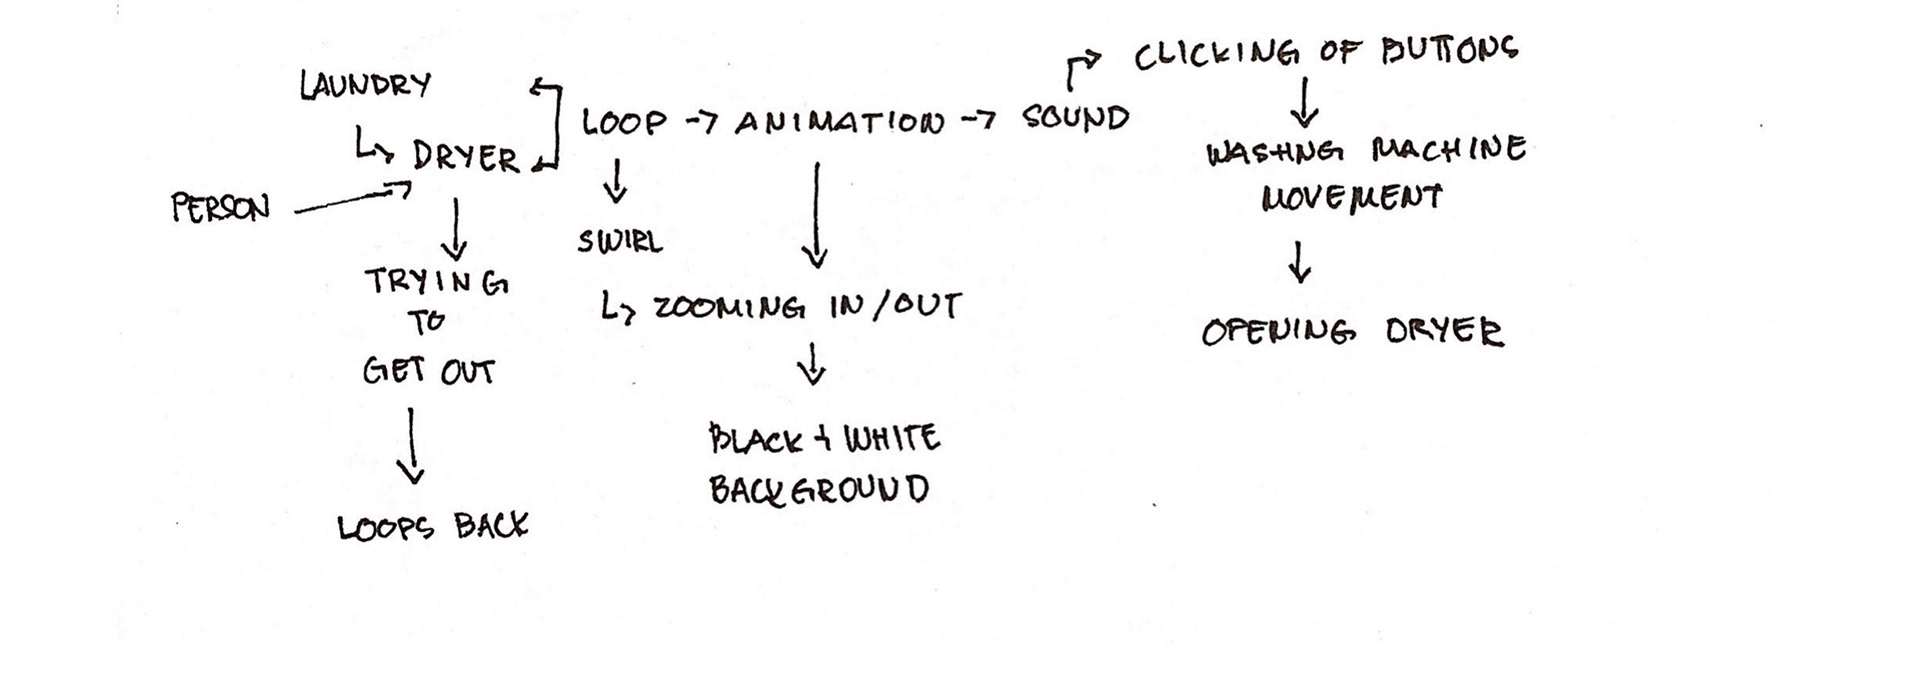 LAUNDRY
↳ DRYER
PERSON →
↓
TRYING
TO
GET OUT
↓
LOOPS BACK
LOOP → ANIMATION → SOUND
↓
SWIRL
↓
↳ ZOOMING IN/OUT
↓
BLACK + WHITE
BACKGROUND
↱ CLICKING OF BUTTONS
↓
WASHNG MACHINE
MOVEMENT
↓
OPENING DRYER